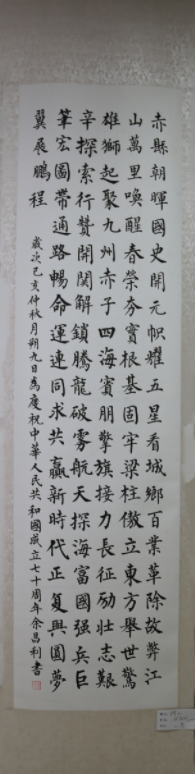 赤縣朝暉國史開元幟耀五星看城鄉百業革除故弊江
山萬里喚醒春榮夯實根基固牢梁柱傲立東方舉世驚
雄獅起聚九州赤子四海賓朋擎旗接力長征勵壯志艱
辛探索行贊開関解鎖騰龍破霧航天探海富國强兵巨
筆宏圖帶通路暢命運連同求共贏新時代正复興圓夢
翼展鵬程
歲次己亥仲秋月朔九日為慶祝中華人民共和國成立七十周年余昌利書